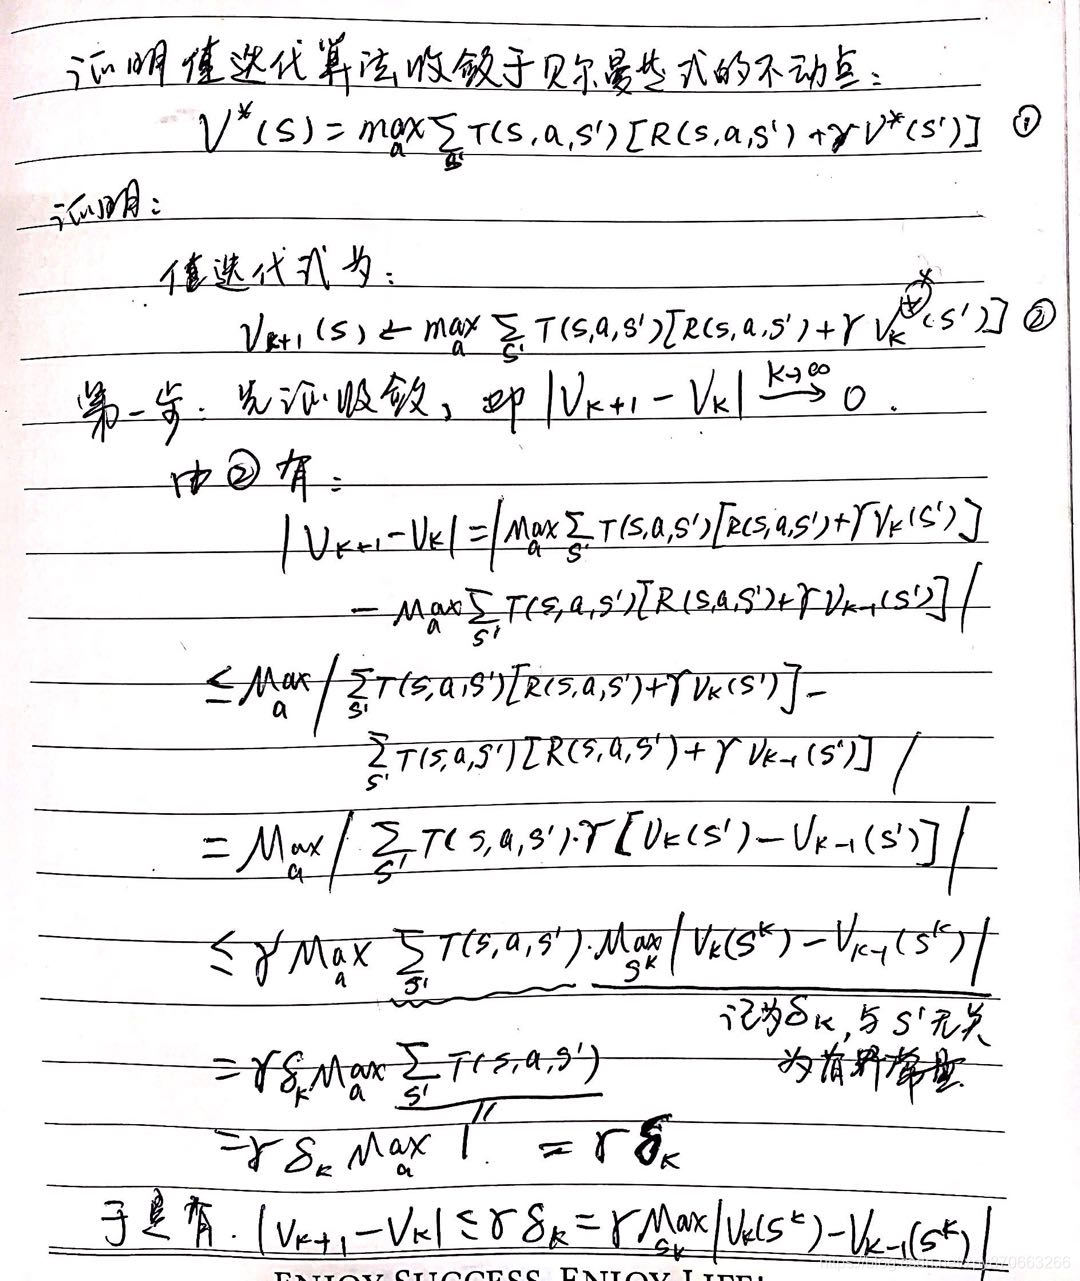 证明值迭代算法收敛于贝尔曼等式的不动点：
V*(S) = max_a Σ_{s'} T(S,a,S') [R(S,a,S') + γV*(S')] ①
证明：
值迭代式为：
V_{k+1}(S) ← max_a Σ_{s'} T(S,a,S')[R(S,a,S') + γV_k^*(S')] ②
第一步：先证收敛，即 |V_{k+1} − V_k| \xrightarrow{k→∞} 0.
由②有：
|V_{k+1} − V_k| = |Max_a Σ_{s'} T(S,a,S')[R(S,a,S') + γV_k(S')]
− Max_a Σ_{s'} T(S,a,S')[R(S,a,S') + γV_{k-1}(S')]|
≤ Max_a | Σ_{s'} T(S,a,S')[R(S,a,S') + γV_k(S')] −
Σ_{s'} T(S,a,S')[R(S,a,S') + γV_{k-1}(S')] |
= Max_a | Σ_{s'} T(S,a,S')·γ[V_k(S') − V_{k-1}(S')] |
≤ γ Max_a Σ_{s'} T(S,a,S')·Max_{S^k} |V_k(S^k) − V_{k-1}(S^k)|
记为δ_k,与S'无关
为有界常量
= γδ_k Max_a Σ_{s'} T(S,a,S')
= γδ_k Max_a 1 = γδ_k
于是有. |V_{k+1} − V_k| ≤ γδ_k = γ Max_{S_k} |V_k(S^k) − V_{k-1}(S^k)|
ENJOY SUCCESS, ENJOY LIFE!